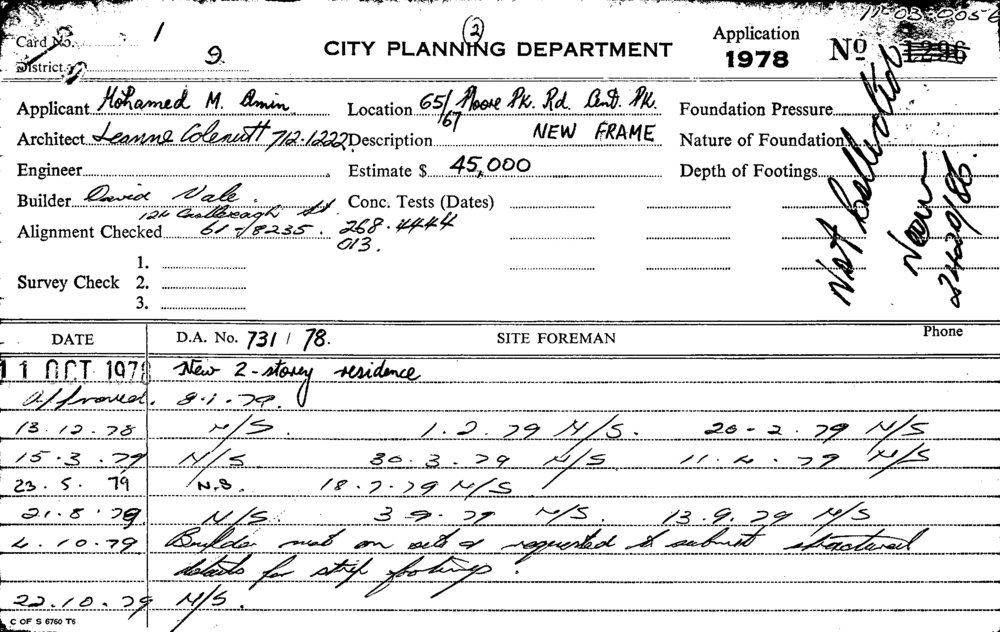 11-03-0056
Card No. 1
(2)
District 9.
CITY PLANNING DEPARTMENT
Application
1978
No 1296
Applicant Mohamed M. Amin
Location 65/67 Moore Pk. Rd. Cent. Pk.
Foundation Pressure
Architect Leanne Colenutt 712.1222
Description NEW FRAME
Nature of Foundation
Engineer
Estimate $ 45,000
Depth of Footings
Builder David Vale.
124 Castlereagh St
Conc. Tests (Dates)
Alignment Checked 61-8235. 268.4444
013.
Survey Check
1.
2.
3.
Not
DATE
D.A. No. 731 / 78.
SITE FOREMAN
Phone
11 OCT 1978 New 2-storey residence
Approved. 8.1.79.
13.12.78 N/S. 1.2.79 N/S. 20-2.79 N/S
15.3.79 N/S. 30.3.79 N/S 11.4.79 N/S
23.5.79 N.S. 18.7.79 N/S
21.8.79 N/S. 3-9.79 N/S. 13.9.79 N/S
4.10.79 Builder met on site & requested to submit structural
details for strip footings.
22.10.79 N/S.
C OF S 6760 T6